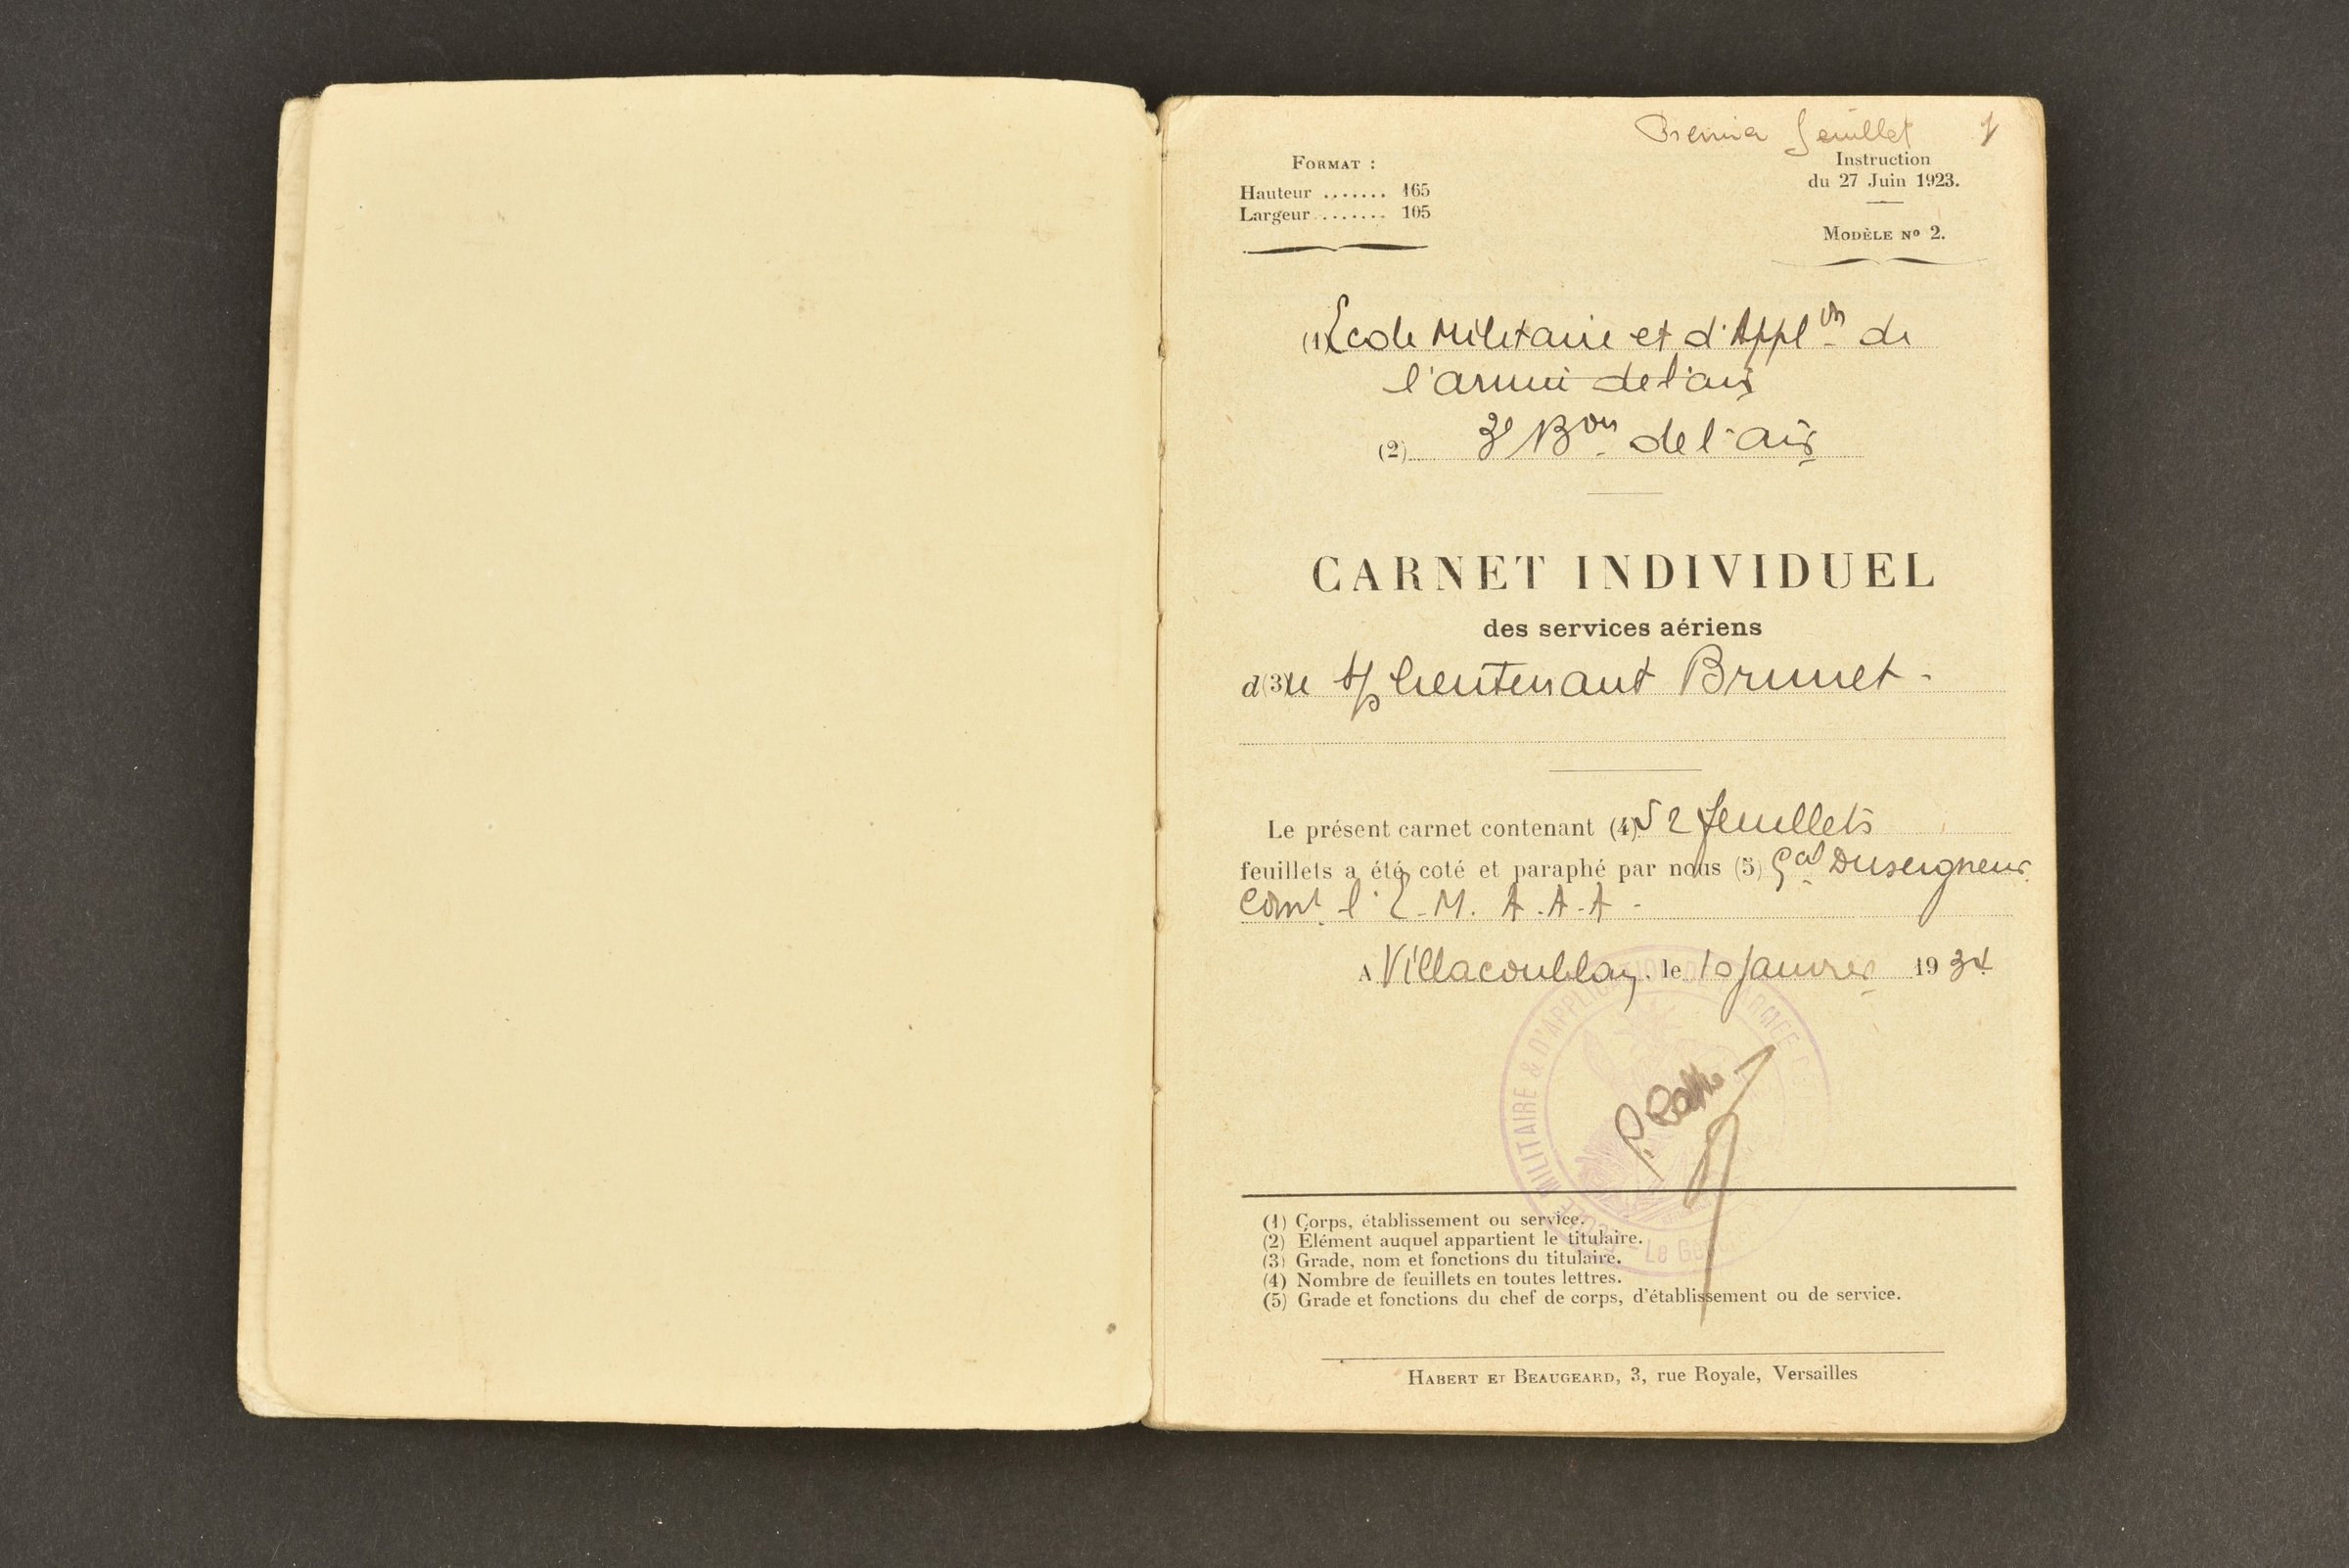 Premier feuillet 1
FORMAT :
Hauteur ....... 165
Largeur ....... 105
Instruction
du 27 Juin 1923.
MODÈLE No 2.
(1) Ecole Militaire et d'Appl on de
l'armée de l'air
(2) 3e Bon de l'air
CARNET INDIVIDUEL
des services aériens
d(3)u s/lieutenant Brunet -
Le présent carnet contenant (4) 52 feuillets
feuillets a été coté et paraphé par nous (5) Gal Duseigneur
Comt l'E.M.A.A.A -
A Villacoublay, le 10 Janvier 1934
MILITAIRE & D'APPLICATION DE L'ARMEE
(1) Corps, établissement ou service.
(2) Élément auquel appartient le titulaire.
(3) Grade, nom et fonctions du titulaire.
(4) Nombre de feuillets en toutes lettres.
(5) Grade et fonctions du chef de corps, d'établissement ou de service.
HABERT ET BEAUGEARD, 3, rue Royale, Versailles